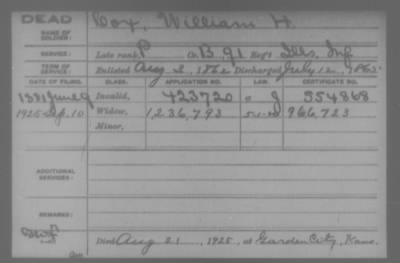 DEAD
NAME OF SOLDIER: Cox, William H.
SERVICE: Late rank, P Co. B, 91 Reg't Ills. Inf.
TERM OF SERVICE: Enlisted Aug 2, 1862 Discharged July 12, 1865
DATE OF FILING. CLASS. APPLICATION NO. CERTIFICATE NO.
1881 June 9 Invalid, 423720 J 554868
1925 Sep. 10 Widow, 1,236,793 966,723
Minor,
ADDITIONAL SERVICES:
REMARKS:
Died Aug 21, 1925, at Garden City, Kans.